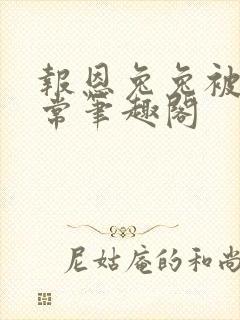 報恩兔兔被
常筆趣閣
尼姑庵的和尚